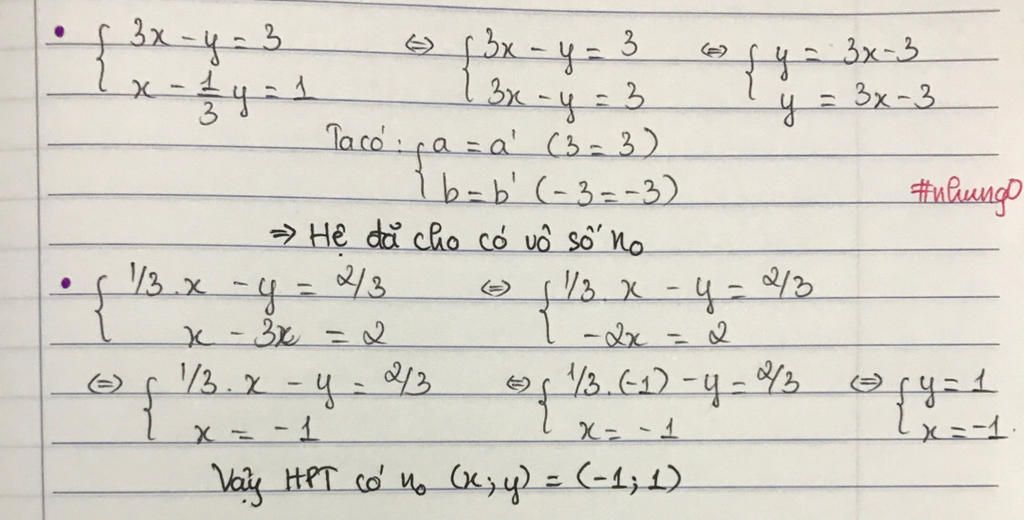 • { 3x - y = 3 ⇔ { 3x - y = 3 ⇔ { y = 3x - 3
x - 1/3 y = 1 3x - y = 3 y = 3x - 3
Ta có: { a = a' (3 = 3)
b = b' (-3 = -3)
#nhung0
⇒ Hệ đã cho có vô số no
• { 1/3 . x - y = 2/3 ⇔ { 1/3 . x - y = 2/3
x - 3x = 2 -2x = 2
⇔ { 1/3 . x - y = 2/3 ⇔ { 1/3 . (-1) - y = 2/3 ⇔ { y = 1
x = -1 x = -1 x = -1.
Vậy HPT có no (x; y) = (-1; 1)